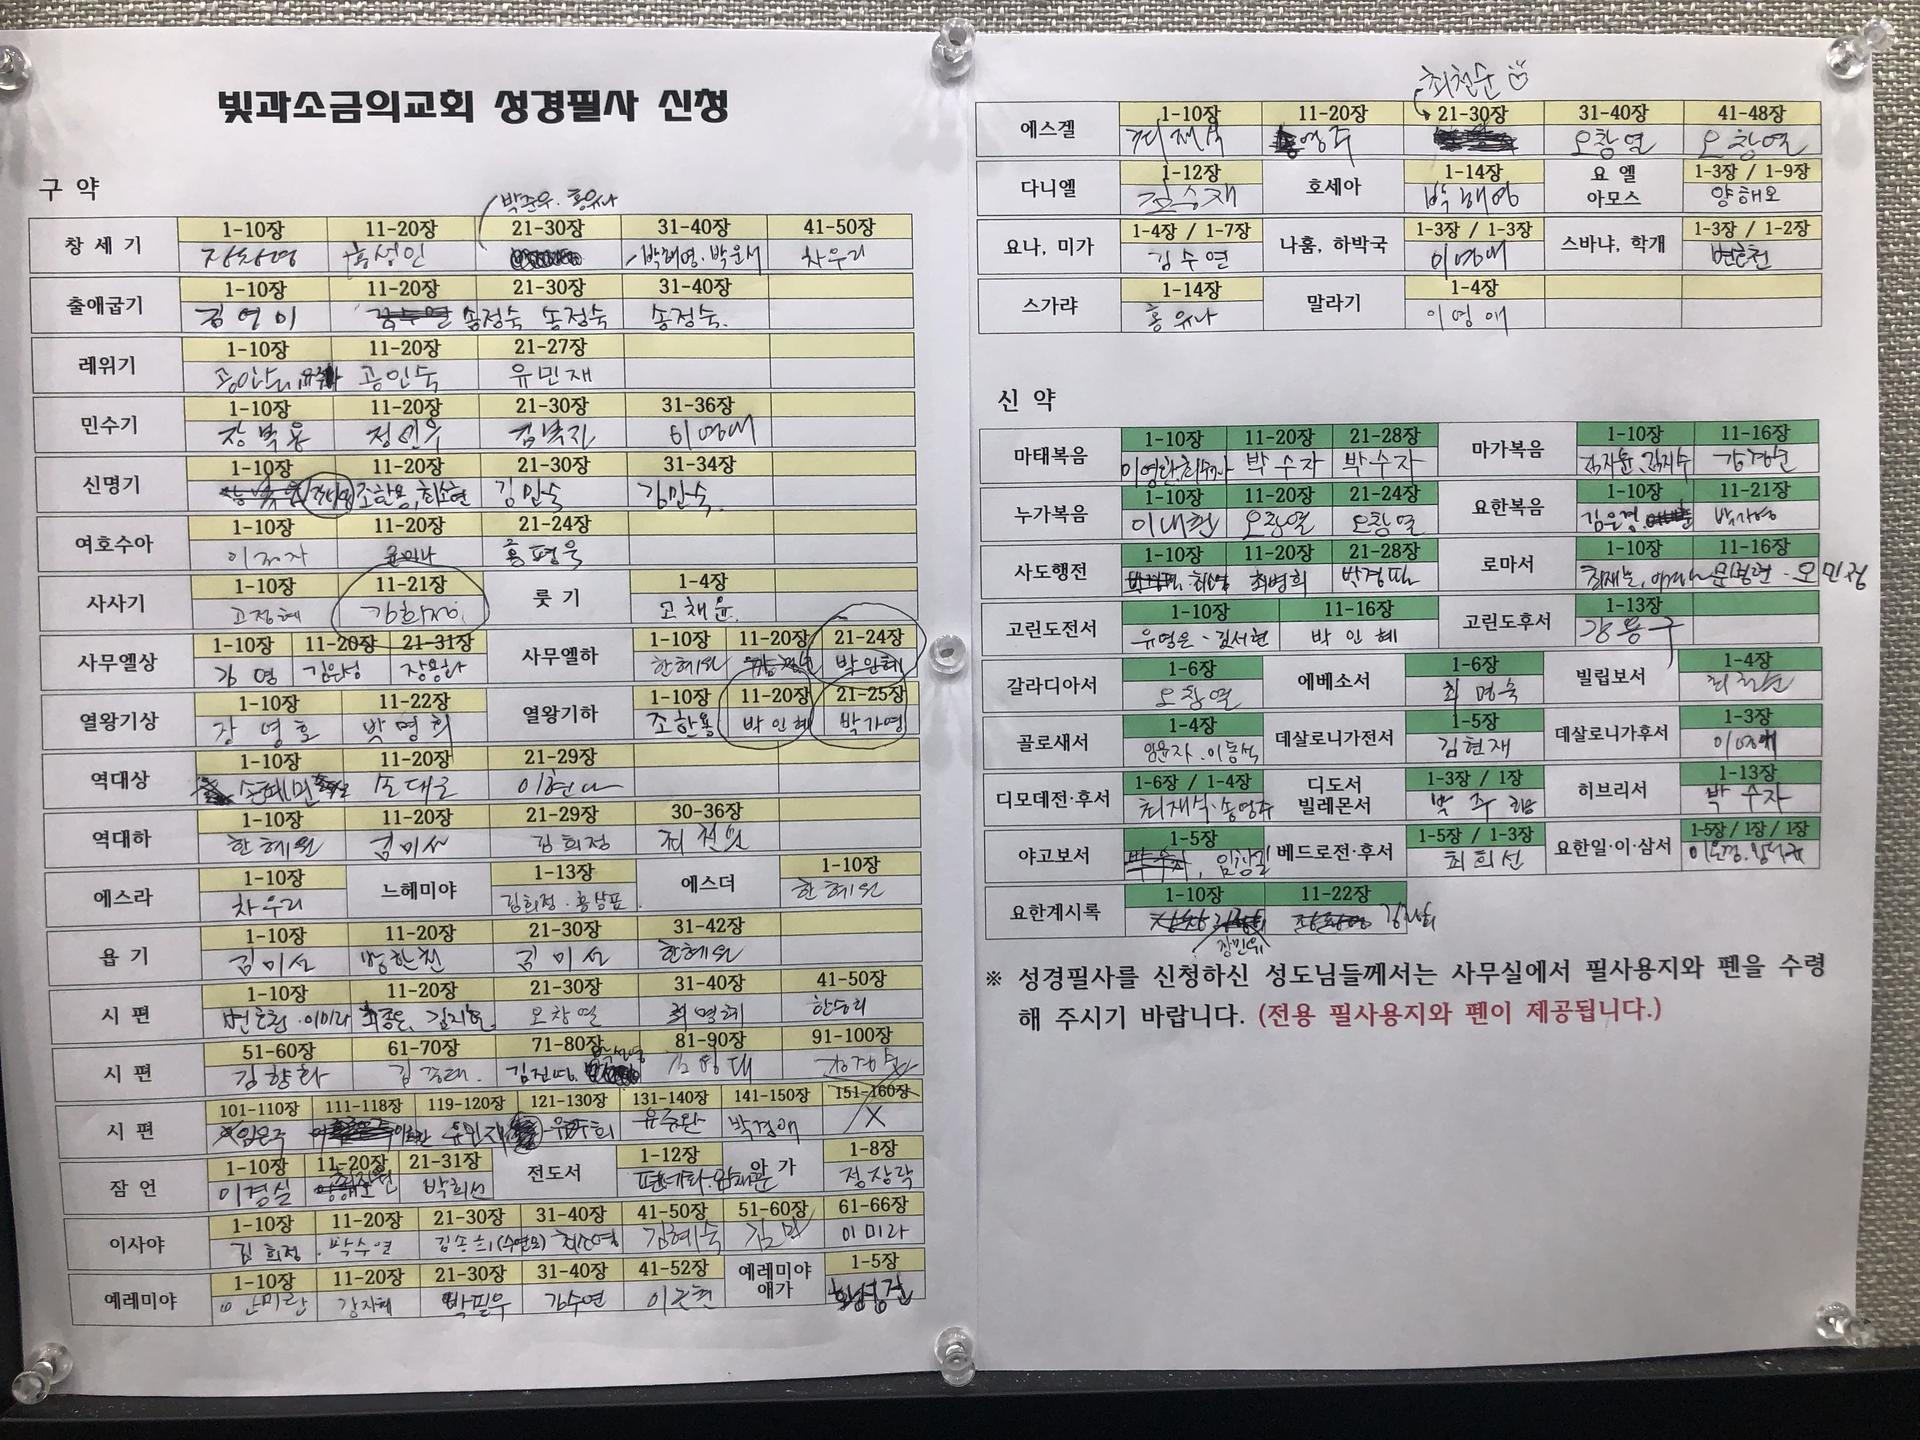 빛과소금의교회 성경필사 신청
구 약
박준우. 홍유나
창 세 기 1-10장 11-20장 21-30장 31-40장 41-50장
장창영 홍성인 박해영. 박윤서 차우리
출애굽기 1-10장 11-20장 21-30장 31-40장
김영미 송정숙 송정숙 송정숙.
레위기 1-10장 11-20장 21-27장
공인숙 유민재
민수기 1-10장 11-20장 21-30장 31-36장
장복용 정선우 김복진 이영애
신명기 1-10장 11-20장 21-30장 31-34장
조한용, 최소현 김민숙 김민숙.
여호수아 1-10장 11-20장 21-24장
윤미나 홍평욱
사사기 1-10장 11-21장 룻 기 1-4장
고정혜 고채윤.
사무엘상 1-10장 11-20장 21-31장 사무엘하 1-10장 11-20장 21-24장
김 영 김은성 장용하 한혜원 박인혜
열왕기상 1-10장 11-22장 열왕기하 1-10장 11-20장 21-25장
장영호 박명희 조한용 박인혜 박가영
역대상 1-10장 11-20장 21-29장
손혜민 손대로 이한나
역대하 1-10장 11-20장 21-29장 30-36장
한혜원 김미선 김희정
에스라 1-10장 느헤미야 1-13장 에스더 1-10장
차우리 김희정. 홍상표. 한혜원
욥 기 1-10장 11-20장 21-30장 31-42장
김미선 방한천 김미선 한혜원
시 편 1-10장 11-20장 21-30장 31-40장 41-50장
변은천. 이미라 최종은, 김지현. 오창열 최명혜 한승희
시 편 51-60장 61-70장 71-80장 81-90장 91-100장
김향화 김종태. 김영대 강경순
시 편 101-110장 111-118장 119-120장 121-130장 131-140장 141-150장 151-160장
임은주 유민재 유주완 박경애 X
잠 언 1-10장 11-20장 21-31장 전도서 1-12장 아 가 1-8장
이경실 박희선 정창락
이사야 1-10장 11-20장 21-30장 31-40장 41-50장 51-60장 61-66장
김희정 박수열 김송희(수연모) 최소영 김혜숙 김민 이미라
예레미야 1-10장 11-20장 21-30장 31-40장 41-52장 예레미야 애가 1-5장
안미란 강지혜 박필우 김수연 이은천 황영진
최천순
에스겔 1-10장 11-20장 21-30장 31-40장 41-48장
최재식 오창열 오창열
다니엘 1-12장 호세아 1-14장 요 엘 아모스 1-3장 / 1-9장
김승재 박해영 양해오
요나, 미가 1-4장 / 1-7장 나훔, 하박국 1-3장 / 1-3장 스바냐, 학개 1-3장 / 1-2장
김수열 이영애 변은천
스가랴 1-14장 말라기 1-4장
홍유나 이영애
신 약
마태복음 1-10장 11-20장 21-28장 마가복음 1-10장 11-16장
박수자 박수자 김지윤. 김지수 강경순
누가복음 1-10장 11-20장 21-24장 요한복음 1-10장 11-21장
이내현 오창열 오창열 김은경. 박가영
사도행전 1-10장 11-20장 21-28장 로마서 1-10장 11-16장
최병희 박경파 문정현. 오민정
고린도전서 1-10장 11-16장 고린도후서 1-13장
유영은. 김서현 박인혜 강용구
갈라디아서 1-6장 에베소서 1-6장 빌립보서 1-4장
오창열 최명숙 최천순
골로새서 1-4장 데살로니가전서 1-5장 데살로니가후서 1-3장
임윤자. 이동석 김현재 이영애
디모데전·후서 1-6장 / 1-4장 디도서 빌레몬서 1-3장 / 1장 히브리서 1-13장
최재식. 송영주 박수자
야고보서 1-5장 베드로전·후서 1-5장 / 1-3장 요한일·이·삼서 1-5장 / 1장 / 1장
임창길 최희선
요한계시록 1-10장 11-22장
장민위
※ 성경필사를 신청하신 성도님들께서는 사무실에서 필사용지와 펜을 수령
해 주시기 바랍니다. (전용 필사용지와 펜이 제공됩니다.)